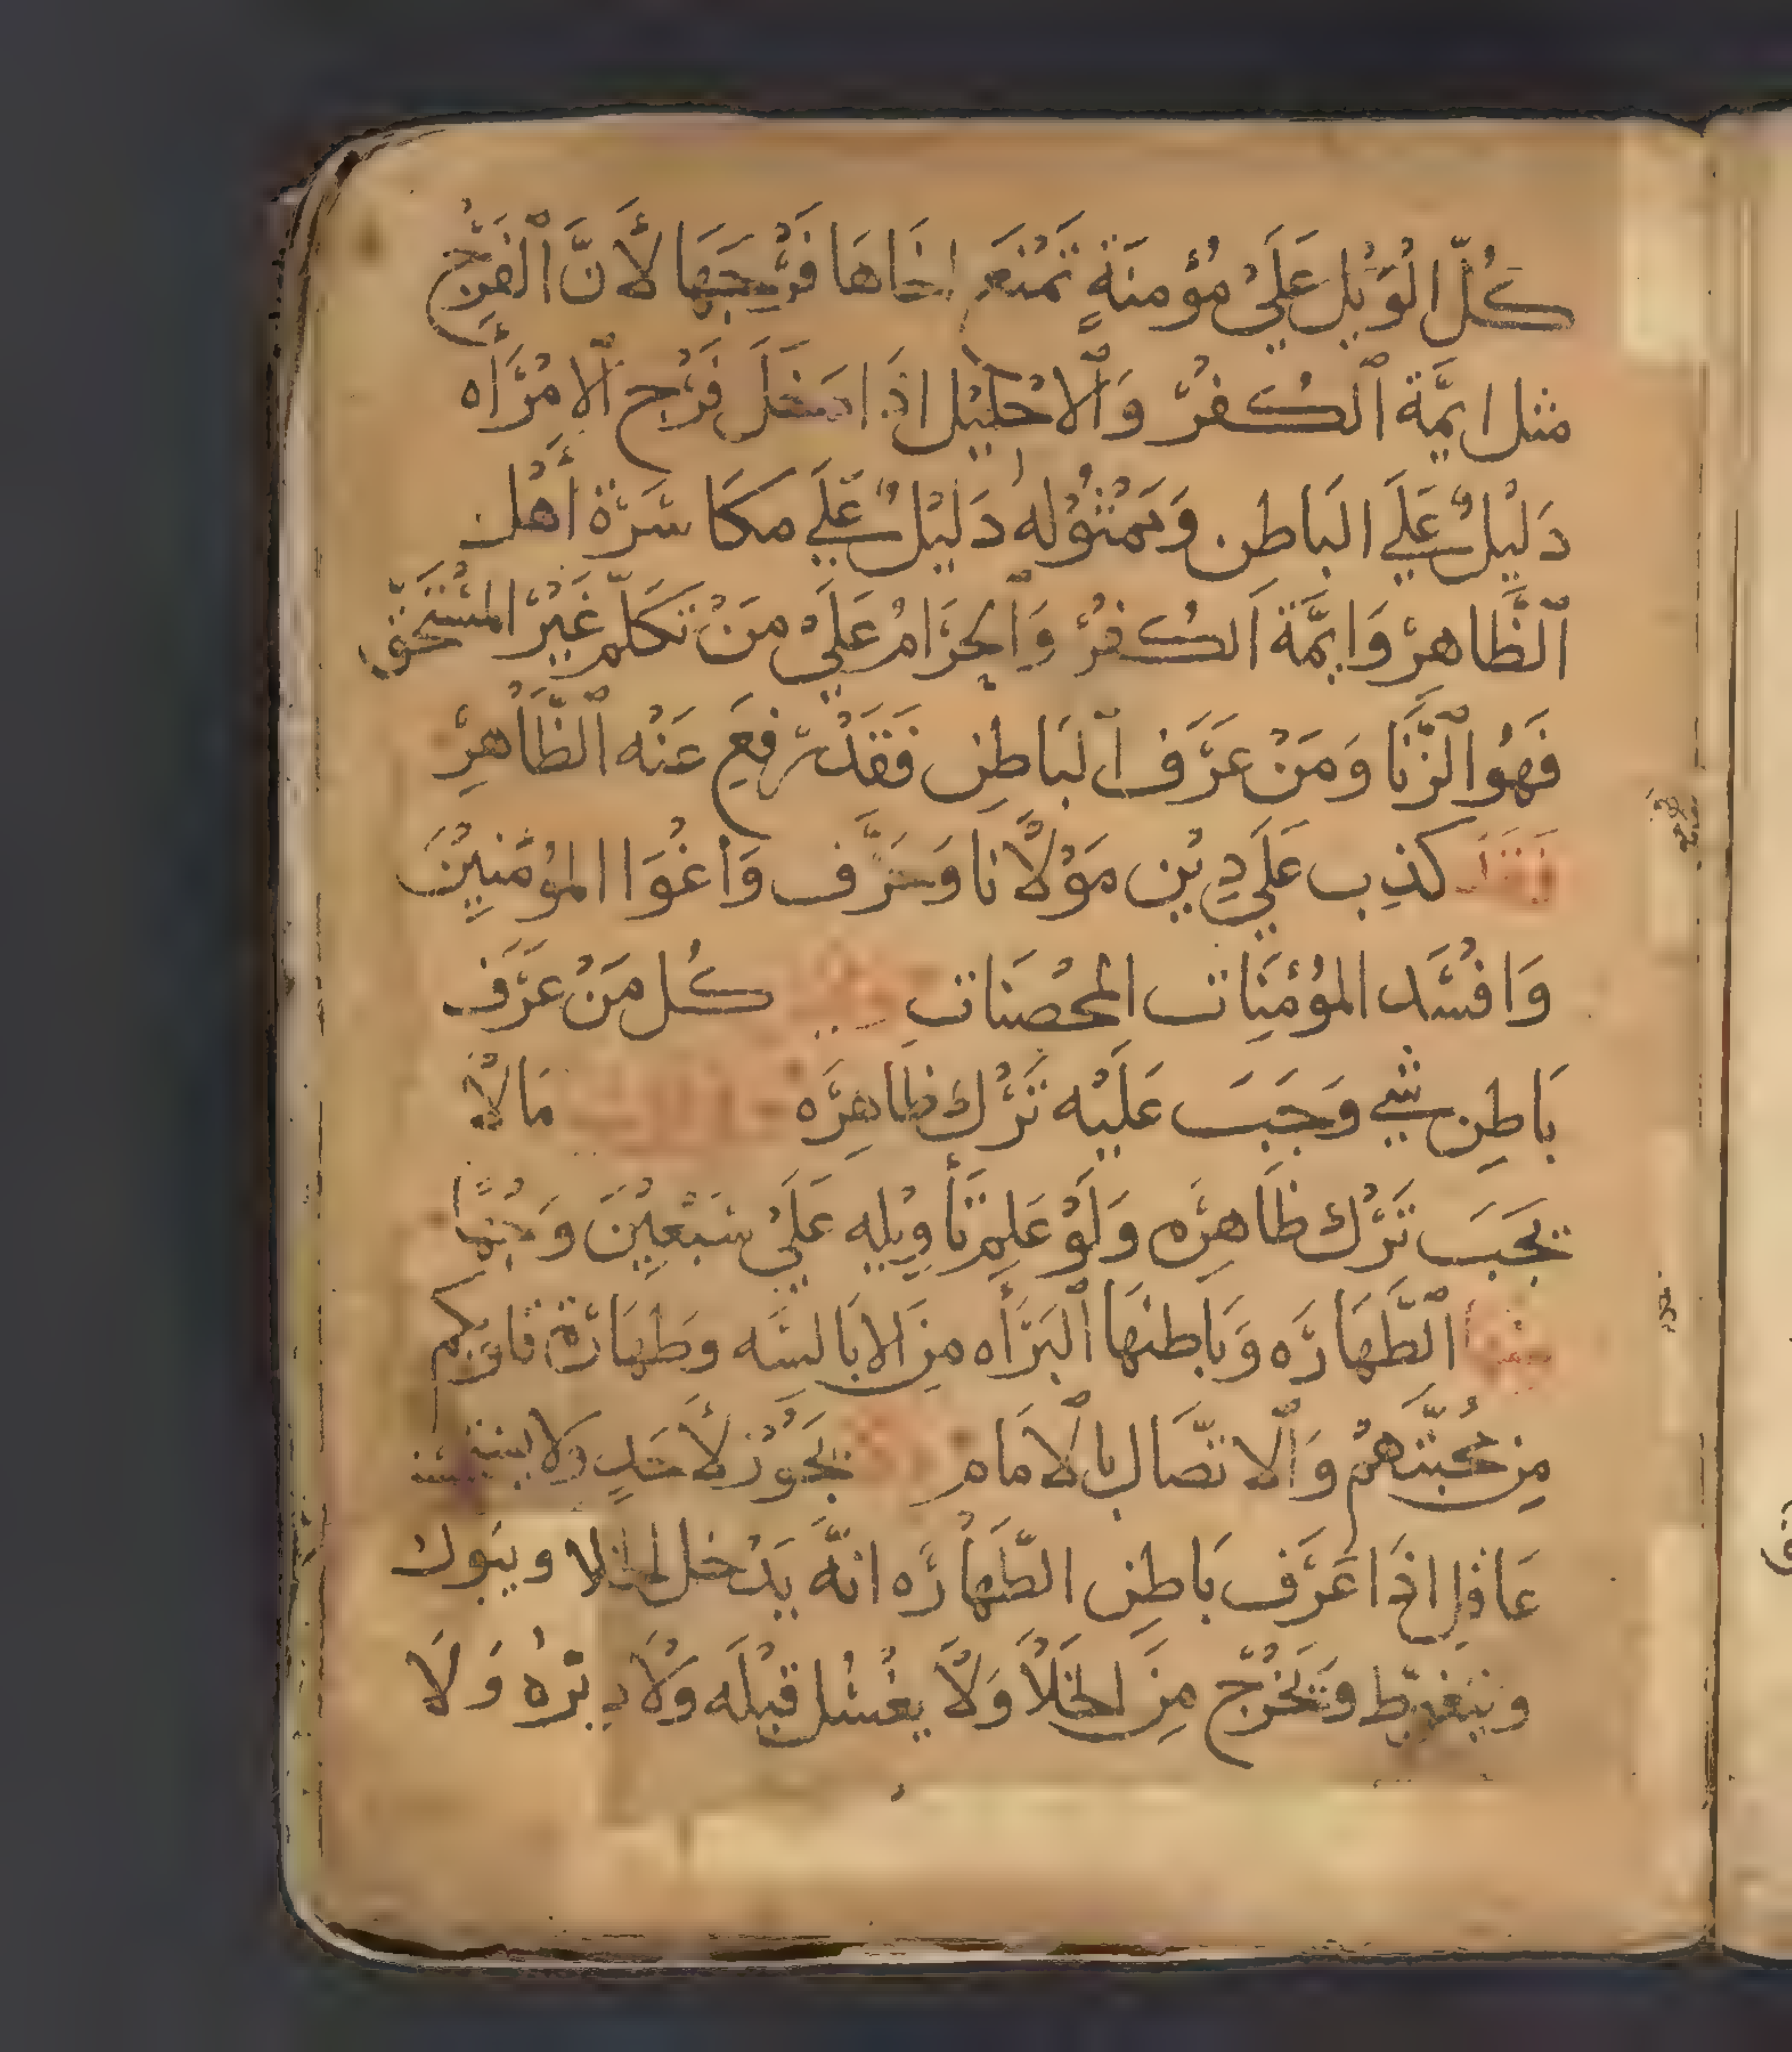 كُلّ الْوَيْل عَلَيْ مُؤْمنَةٍ تَمْنَع اخَاهَا فَرْجَهَا لأَنَّ ٱلْفَرْج
مثل ايمَّة ٱلكُفرْ وَٱلاحْلِيْل اذَا دَخَلَ فَرْج ٱلامْرَأَه
دَلِيْلٌ عَلَي البَاطن وَ دَلِيْلٌ عَلَي مكَاسَرَة أَهْل
ٱلظَّاهِرْ وَايمَّة ٱلكُفرْ وَٱلحَرَامُ عَلَيْ مَنْ تَكَلَّم غَيْرْ المسْتَحَقّ
فَهُوَ ٱلزّنَا وَمَنْ عَرَّف ٱلبَاطِن فَقَدْ رفِعَ عَنْه ٱلظَّاهِرْ
كذِب عَلَي دِيْن مَوْلَانا وَ وَاغْوَا المُؤمْنِيْنَ
وَافْسَد المُؤْمِنَات المحْصَنَات كُل مَنْ عَرَّف
بَاطِن شي وَجَبَ عَلَيْه تَرْك ظَاهِرَه مَالَا
يجَبَ تَرْك ظَاهِرَه وَلَوْ عَلِم تَأوِيْلِه عَلَيْ سَبْعِيْنَ وَجْهًا
ٱلطَّهَارَه وَبَاطنهَا ٱلبَرَأه مِنَ الابَالسَه وطَهَارَة قلوبكم
مِن محَبَّتَهمْ وَٱلاتّصَال بالامَام يجَوْز لأَحَدٍ ولا
عَاقِل اذَا عَرَّف بَاطِن الطّهَارَه انَّه يَدْخل الخلا ويبَول
ويتغوّط وَيَخْرُجْ مِنَ الخَلَا وَلَا يغْسُل قبْلَه وَلَا دبْرهُ وَلَا